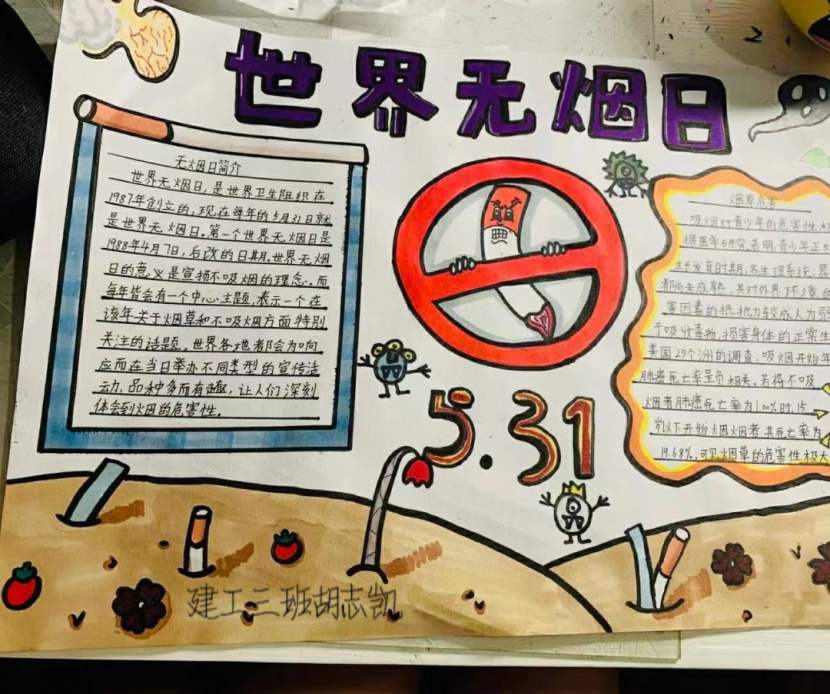 世界无烟日
无烟日简介
世界无烟日,是世界卫生组织在
1987年创立的,现在每年的5月31日就
是世界无烟日。第一个世界无烟日是
1988年4月7日,后改的日期。世界无烟
日的意义是宣扬不吸烟的理念。而
每年皆会有一个中心主题,表示一个在
该年关于烟草和不吸烟方面特别
关注的话题。世界各地者都会为响
应而在当日举办不同类型的宣传活
动,品种多而有趣,让人们深刻
体会到烟的危害性。
5.31
烟草危害
吸烟对青少年的危害性
据医学研究表明,青少年正
生长发育时期,各生理系统、
都尚未成熟,其对外界环境
害因素的抵抗力较成人为弱
于吸收毒物,损害身体的正常生
美国25个洲的调查,吸烟开始年
肺癌死亡率呈负相关,若将不吸
烟者肺癌死亡率为1.00%时,15
岁以下开始吸烟者其死亡率为
19.68%,可见烟草的危害性极大
建工三班胡志凯